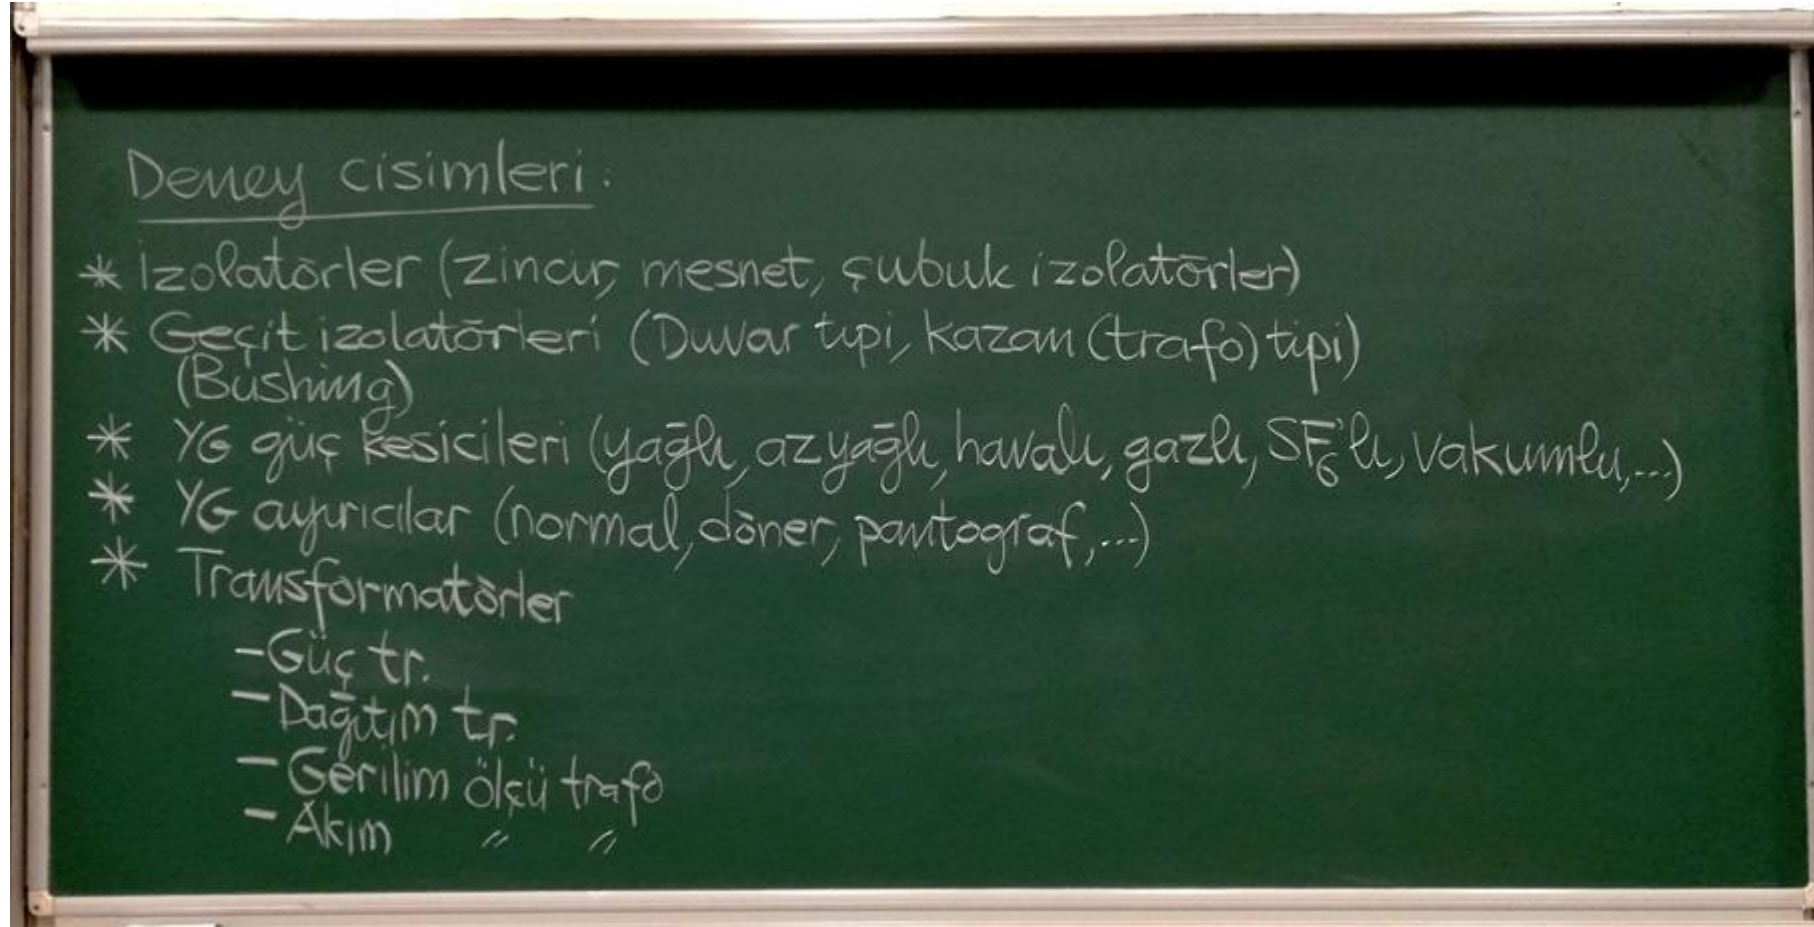 Deney cisimleri:
* İzolatörler (zincir, mesnet, çubuk izolatörler)
* Geçit izolatörleri (Duvar tipi, kazan (trafo) tipi)
(Bushing)
* YG güç kesicileri (yağlı, azyağlı, havalı, gazlı, SF₆'lı, vakumlu,...)
* YG ayırıcılar (normal, döner, pantograf,...)
* Transformatörler
- Güç tr.
- Dağıtım tr.
- Gerilim ölçü trafo
- Akım " "